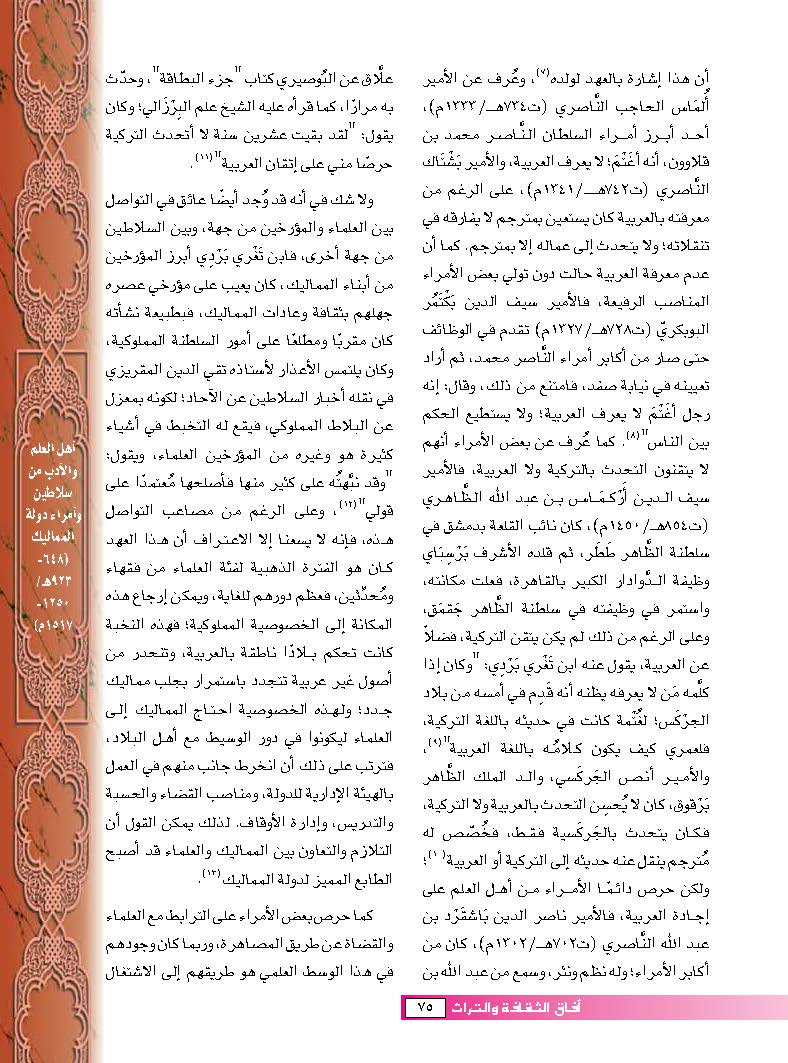 أن هذا إشارة بالعهد لولده(٧)، وعُرف عن الأمير
أُلمَاس الحاجب النَّاصري (ت٧٣٤هـ/١٣٣٣م)،
أحد أبرز أمراء السلطان النَّاصر محمد بن
قلاوون، أنه أغْتَمَ؛ لا يعرف العربية، والأمير بَشْتَاك
النَّاصري (ت٧٤٢هـ/١٣٤١م)، على الرغم من
معرفته بالعربية كان يستعين بمترجم لا يفارقه في
تنقلاته؛ ولا يتحدث إلى عماله إلا بمترجم. كما أن
عدم معرفة العربية حالت دون تولي بعض الأمراء
المناصب الرفيعة، فالأمير سيف الدين بَكْتَمُر
البوبكريّ (ت٧٢٨هـ/١٣٢٧م) تقدم في الوظائف
حتى صار من أكابر أمراء النَّاصر محمد، ثم أراد
تعيينه في نيابة صفد، فامتنع من ذلك، وقال: إنه
رجل أغْتَمَ لا يعرف العربية؛ ولا يستطيع الحكم
بين الناس"(٨). كما عُرف عن بعض الأمراء أنهم
لا يتقنون التحدث بالتركية ولا العربية، فالأمير
سيف الدين أَرْكَمَاس بن عبد الله الظَّاهري
(ت٨٥٤هـ/١٤٥٠م)، كان نائب القلعة بدمشق في
سلطنة الظَّاهر طَطَر، ثم قلده الأشرف بَرْسِبَاي
وظيفة الدَّوادار الكبير بالقاهرة، فعلت مكانته،
واستمر في وظيفته في سلطنة الظَّاهر جَقمَق،
وعلى الرغم من ذلك لم يكن يتقن التركية، فضلاً
عن العربية، يقول عنه ابن تَغْري بَرْدِي: "وكان إذا
كلَّمه مَن لا يعرفه يظنه أنه قَدِم في أمسه من بلاد
الجرْكَس؛ لغُتْمة كانت في حديثه باللغة التركية،
فلعمري كيف يكون كلامُه باللغة العربية"(٩)،
والأمير أنص الجَركَسي، والد الملك الظَّاهر
بَرْقوق، كان لا يُحسِن التحدث بالعربية ولا التركية،
فكان يتحدث بالجَركَسية فقط، فخُصّص له
مُترجم ينقل عنه حديثه إلى التركية أو العربية(١٠)؛
ولكن حرص دائمًا الأمراء من أهل العلم على
إجادة العربية، فالأمير ناصر الدين بَاشقَرْد بن
عبد الله النَّاصري (ت٧٠٢هـ/١٣٠٢م)، كان من
أكابر الأمراء؛ وله نظم ونثر، وسمع من عبد الله بن
علَّاق عن البُوصيري كتاب "جزء البطاقة"، وحدّث
به مرارًا، كما قرأه عليه الشيخ علم البِرْزَالي؛ وكان
يقول: "لقد بقيت عشرين سنة لا أتحدث التركية
حرصًا مني على إتقان العربية"(١١).
ولا شك في أنه قد وُجد أيضًا عائق في التواصل
بين العلماء والمؤرخين من جهة، وبين السلاطين
من جهة أخرى، فابن تَغْري بَرْدِي أبرز المؤرخين
من أبناء المماليك، كان يعيب على مؤرخي عصره
جهلهم بثقافة وعادات المماليك، فبطبيعة نشأته
كان مقربًا ومطلعًا على أمور السلطنة المملوكية،
وكان يلتمس الأعذار لأستاذه تقي الدين المقريزي
في نقله أخبار السلاطين عن الآحاد؛ لكونه بمعزل
عن البلاط المملوكي، فيقع له التخبط في أشياء
كثيرة هو وغيره من المؤرخين العلماء، ويقول:
"وقد نبَّهتُه على كثير منها فأصلحها مُعتمدًا على
قولي"(١٢)، وعلى الرغم من مصاعب التواصل
هذه، فإنه لا يسعنا إلا الاعتراف أن هذا العهد
كان هو الفترة الذهبية لفئة العلماء من فقهاء
ومُحدِّثين، فعظم دورهم للغاية، ويمكن إرجاع هذه
المكانة إلى الخصوصية المملوكية؛ فهذه النخبة
كانت تحكم بلادًا ناطقة بالعربية، وتنحدر من
أصول غير عربية تتجدد باستمرار بجلب مماليك
جدد؛ ولهذه الخصوصية احتاج المماليك إلى
العلماء ليكونوا في دور الوسيط مع أهل البلاد،
فترتب على ذلك أن انخرط جانب منهم في العمل
بالهيئة الإدارية للدولة، ومناصب القضاء والحسبة
والتدريس، وإدارة الأوقاف. لذلك يمكن القول أن
التلازم والتعاون بين المماليك والعلماء قد أصبح
الطابع المميز لدولة المماليك(١٣).
كما حرص بعض الأمراء على الترابط مع العلماء
والقضاة عن طريق المصاهرة، وربما كان وجودهم
في هذا الوسط العلمي هو طريقهم إلى الاشتغال
أهل العلم
والأدب من
سلاطين
وأمراء دولة
المماليك
(٦٤٨-
٩٢٣هـ/
١٢٥٠-
١٥١٧م)
آفاق الثقافة والتراث ٧٥